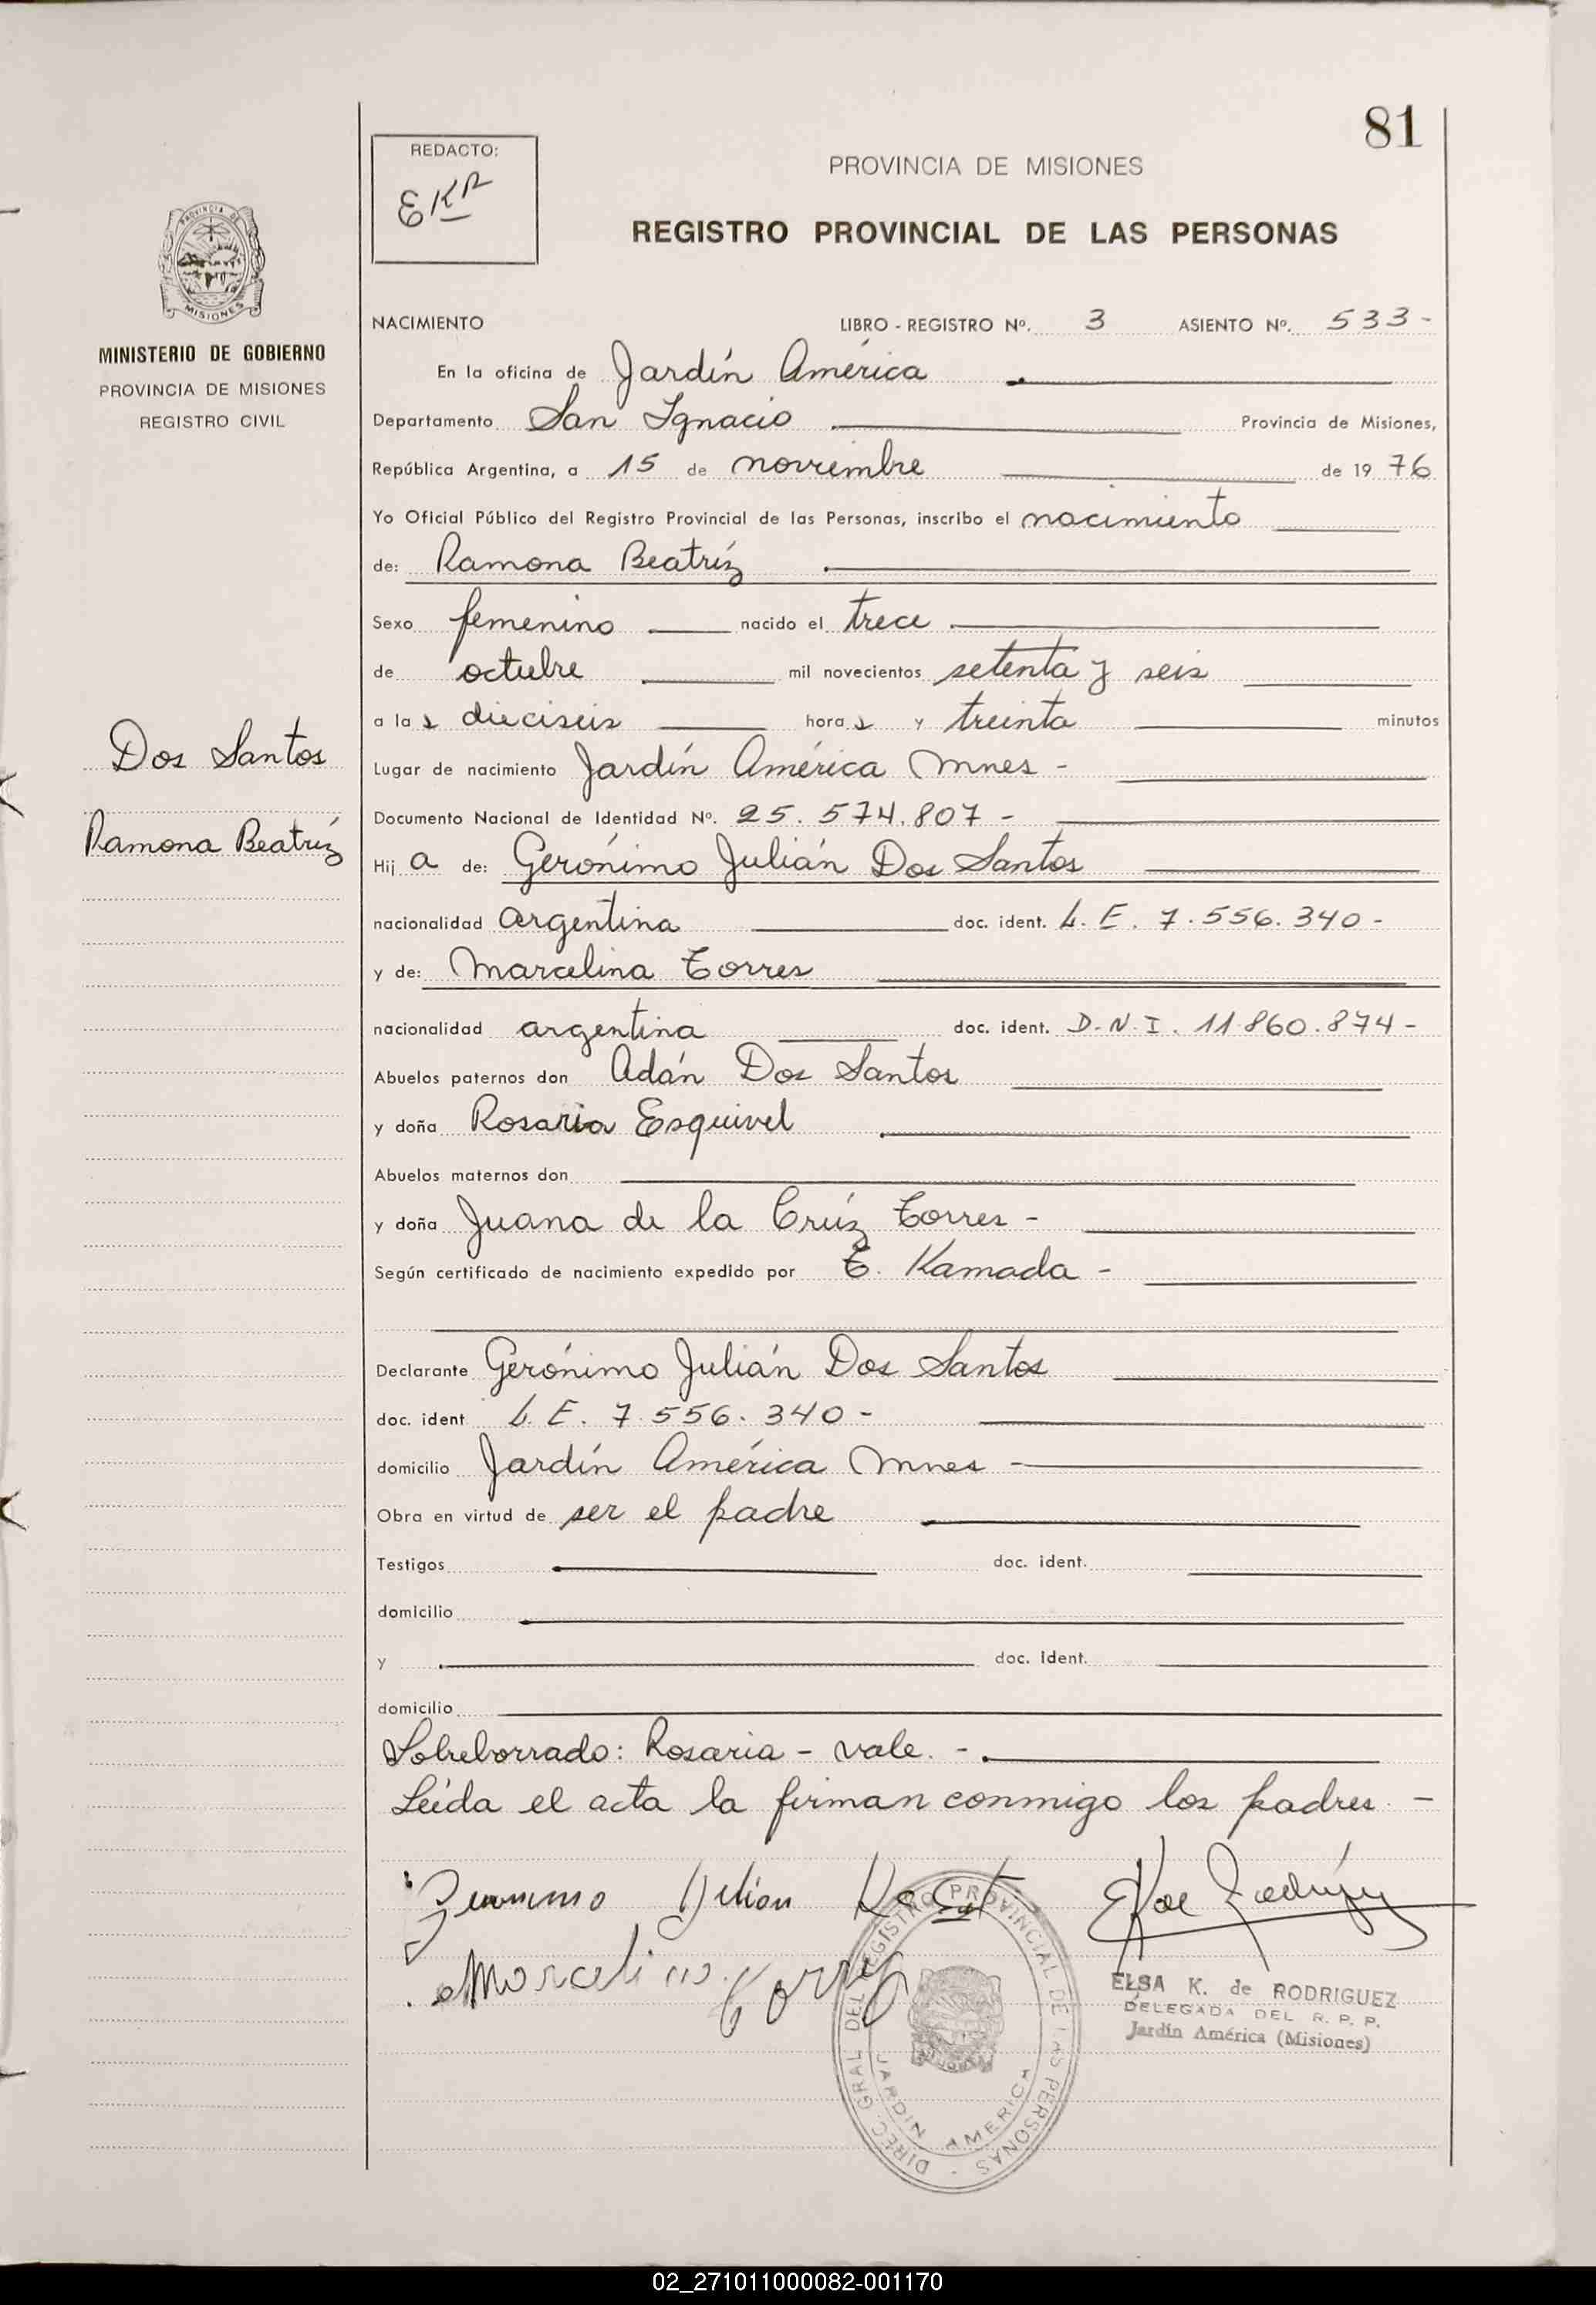 81
REDACTO:
EKR
PROVINCIA DE MISIONES
REGISTRO PROVINCIAL DE LAS PERSONAS
PROVINCIA DE
MISIONES
MINISTERIO DE GOBIERNO
PROVINCIA DE MISIONES
REGISTRO CIVIL
NACIMIENTO LIBRO - REGISTRO Nº. 3 ASIENTO Nº. 533-
En la oficina de Jardín América
Departamento San Ignacio Provincia de Misiones,
República Argentina, a 15 de noviembre de 1976
Yo Oficial Público del Registro Provincial de las Personas, inscribo el nacimiento
de: Ramona Beatríz
Sexo femenino nacido el trece
de octubre mil novecientos setenta y seis
a las dieciseis horas y treinta minutos
Dos Santos
Ramona Beatríz
Lugar de nacimiento Jardín América Mnes -
Documento Nacional de Identidad Nº. 25.574.807 -
Hija de: Gerónimo Julián Dos Santos
nacionalidad argentina doc. ident. L.E. 7.556.340-
y de: Marcelina Torres
nacionalidad argentina doc. ident. D.N.I. 11.860.874-
Abuelos paternos don Adán Dos Santos
y doña Rosaria Esquivel
Abuelos maternos don
y doña Juana de la Crúz Torres -
Según certificado de nacimiento expedido por T. Kamada -
Declarante Gerónimo Julián Dos Santos
doc. ident L.E. 7.556.340-
domicilio Jardín América Mnes -
Obra en virtud de ser el padre
Testigos doc. ident.
domicilio
y doc. ident.
domicilio
Sobreborrado: Rosaria - vale. -
Leída el acta la firman conmigo los padres. -
Julian
Marcelina Torres
DIREC. GRAL DEL REGISTRO PROVINCIAL DE LAS PERSONAS -
JARDIN AMERICA
ELSA K. de RODRIGUEZ
DELEGADA DEL R. P. P.
Jardín América (Misiones)
02_271011000082-001170